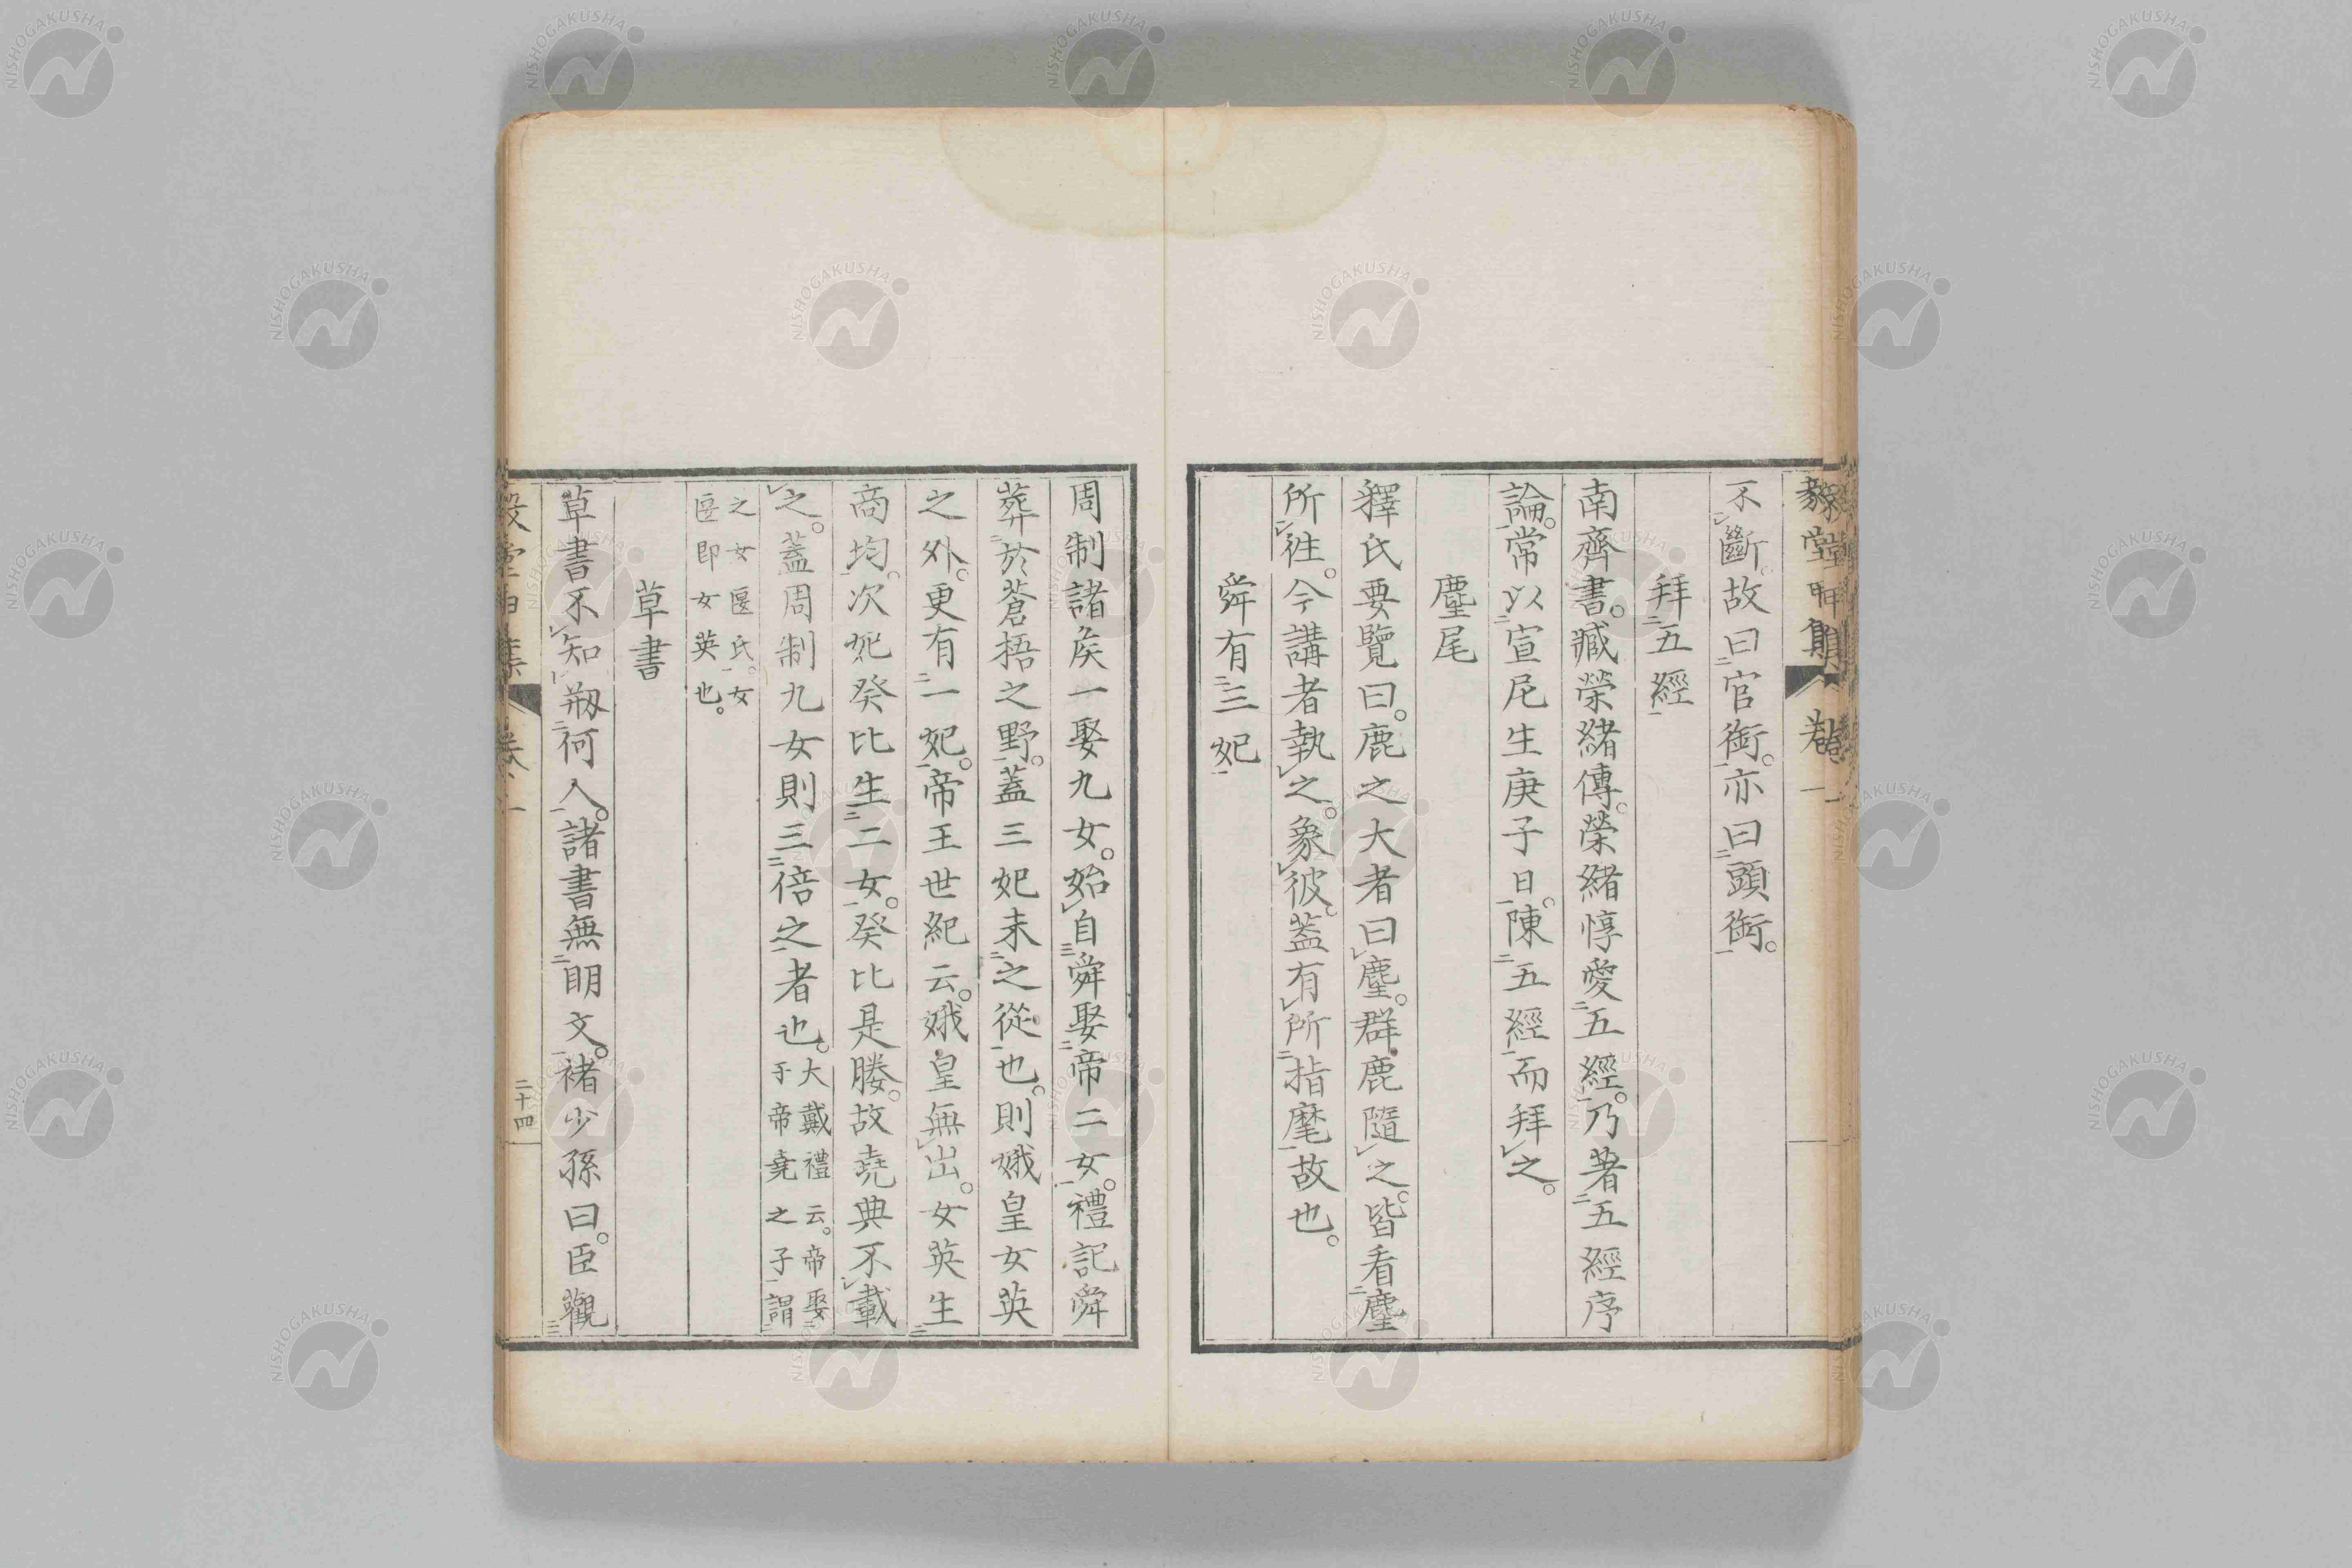 不斷。故曰官銜。亦曰頭銜。
拜五經
南齊書。臧榮緒傳。榮緒惇愛五經。乃著五經序
論。常以宣尼生庚子日。陳五經而拜之。
麈尾
釋氏要覽曰。鹿之大者曰麈。群鹿隨之。皆看麈
所徃。今講者執之。象彼。蓋有所指麾故也。
舜有三妃
周制諸矦一娶九女。始自舜娶帝二女。禮記舜
葬於蒼梧之野。蓋三妃未之從也。則娥皇女英
之外。更有一妃。帝王世紀云。娥皇無出。女英生
商均。次妃癸比生二女。癸比是媵。故堯典不載
之。蓋周制九女則三倍之者也。大戴禮云。帝娶
于帝堯之子謂
之女匽氏。女
匽即女英也。
草書
草書不知剏何人。諸書無明文。褚少孫曰。臣觀
毅堂甲集 卷一
二十四
NISHOGAKUSHA